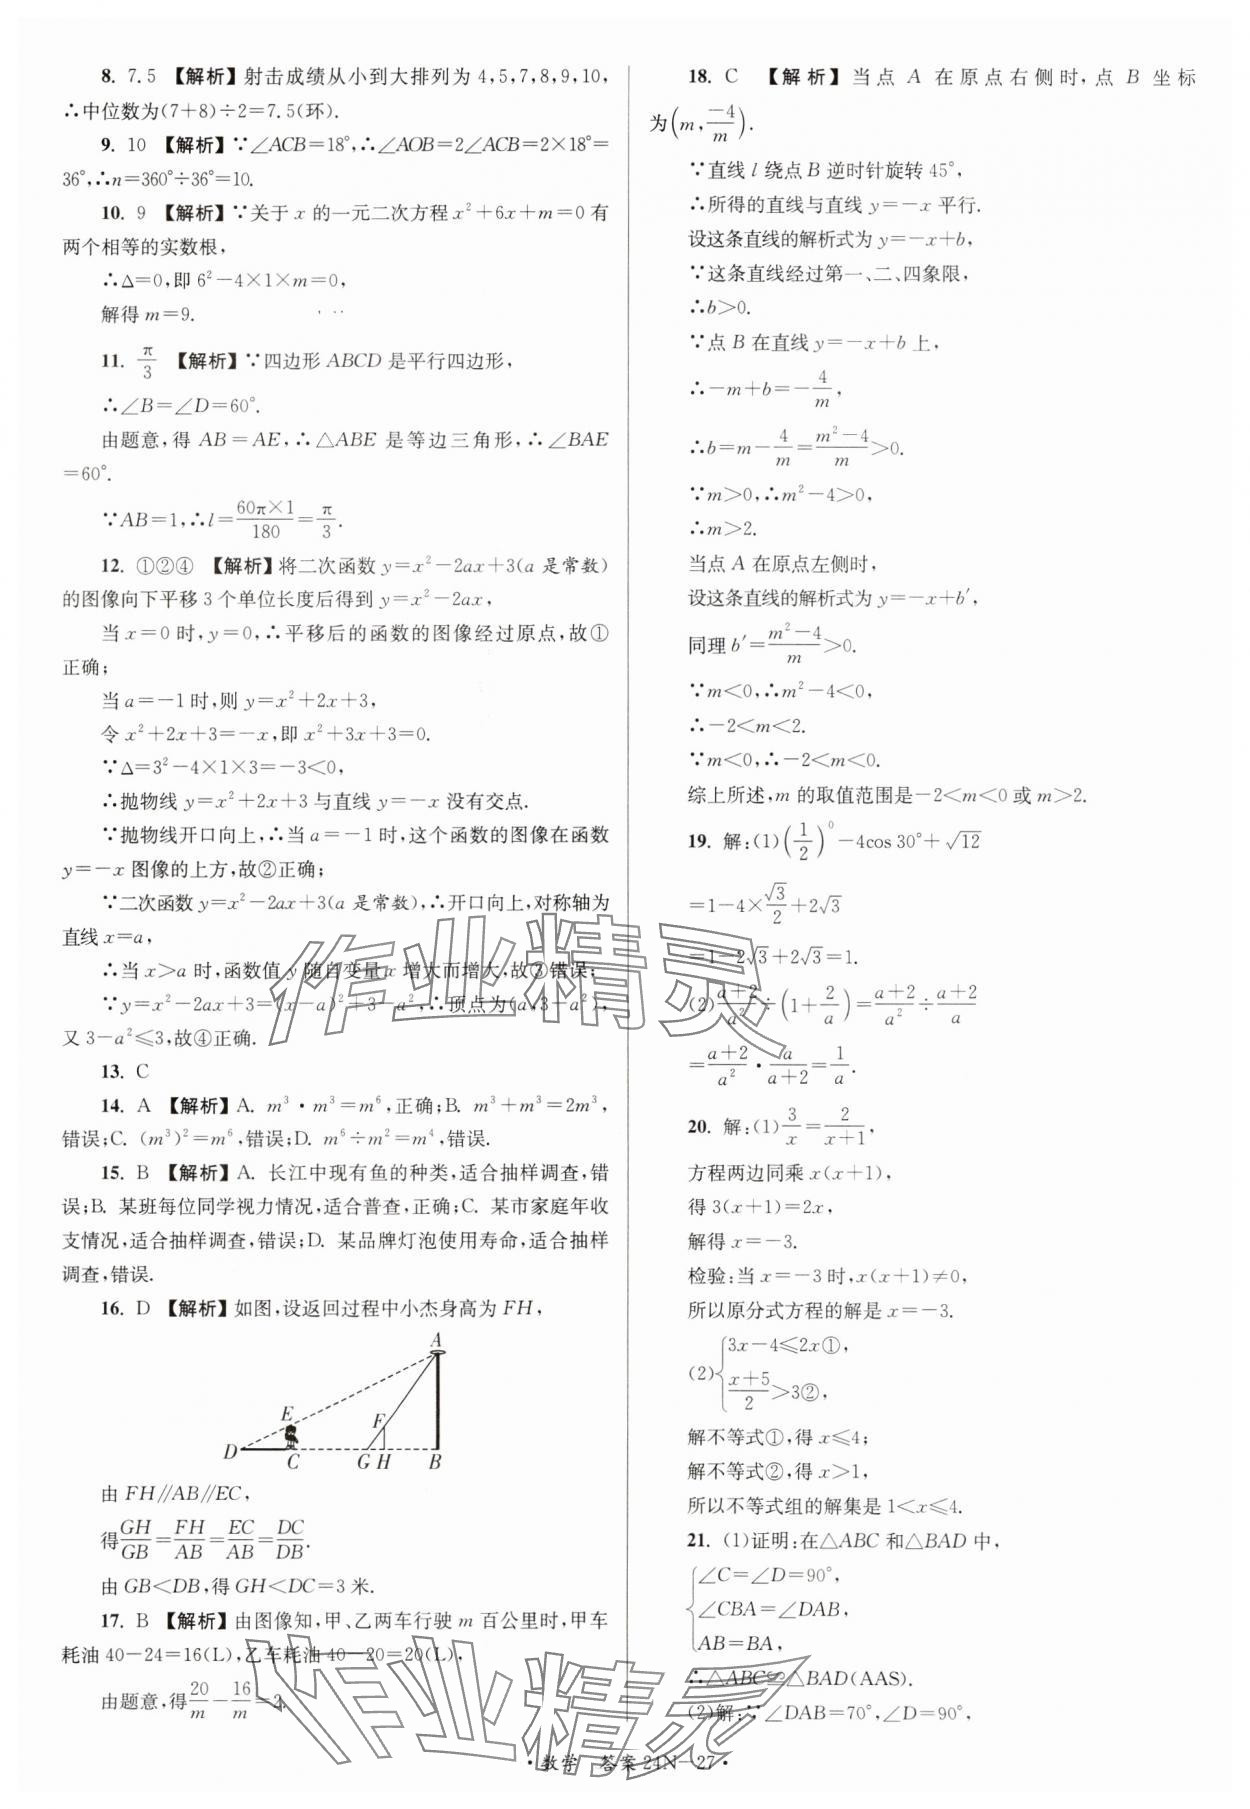 8. 7.5 【解析】射击成绩从小到大排列为 4,5,7,8,9,10,
∴中位数为(7+8)÷2=7.5(环).
9. 10 【解析】∵∠ACB=18°,∴∠AOB=2∠ACB=2×18°=
36°,∴n=360°÷36°=10.
10. 9 【解析】∵关于 x 的一元二次方程 x²+6x+m=0 有
两个相等的实数根,
∴Δ=0,即 6²-4×1×m=0,
解得 m=9.
11. π/3 【解析】∵四边形 ABCD 是平行四边形,
∴∠B=∠D=60°.
由题意,得 AB=AE,∴△ABE 是等边三角形,∴∠BAE
=60°.
∵AB=1,∴l=60π×1/180=π/3.
12. ①②④ 【解析】将二次函数 y=x²-2ax+3(a 是常数)
的图像向下平移 3 个单位长度后得到 y=x²-2ax,
当 x=0 时,y=0,∴平移后的函数的图像经过原点,故①
正确;
当 a=-1 时,则 y=x²+2x+3,
令 x²+2x+3=-x,即 x²+3x+3=0.
∵Δ=3²-4×1×3=-3<0,
∴抛物线 y=x²+2x+3 与直线 y=-x 没有交点.
∵抛物线开口向上,∴当 a=-1 时,这个函数的图像在函数
y=-x 图像的上方,故②正确;
∵二次函数 y=x²-2ax+3(a 是常数),∴开口向上,对称轴为
直线 x=a,
∴当 x>a 时,函数值 y 随自变量 x 增大而增大,故③错误;
∵y=x²-2ax+3=(x-a)²+3-a²,∴顶点为(a,3-a²),
又 3-a²≤3,故④正确.
13. C
14. A 【解析】A. m³·m³=m⁶,正确;B. m³+m³=2m³,
错误;C. (m³)²=m⁶,错误;D. m⁶÷m²=m⁴,错误.
15. B 【解析】A. 长江中现有鱼的种类,适合抽样调查,错
误;B. 某班每位同学视力情况,适合普查,正确;C. 某市家庭年收
支情况,适合抽样调查,错误;D. 某品牌灯泡使用寿命,适合抽样
调查,错误.
16. D 【解析】如图,设返回过程中小杰身高为 FH,
A
E
F
D C G H B
由 FH∥AB∥EC,
得GH/GB=FH/AB=EC/AB=DC/DB.
由 GB<DB,得 GH<DC=3 米.
17. B 【解析】由图像知,甲、乙两车行驶 m 百公里时,甲车
耗油 40-24=16(L),乙车耗油 40-20=20(L),
由题意,得20/m-16/m=2,
18. C 【解析】当点 A 在原点右侧时,点 B 坐标
为(m,-4/m).
∵直线 l 绕点 B 逆时针旋转 45°,
∴所得的直线与直线 y=-x 平行.
设这条直线的解析式为 y=-x+b,
∵这条直线经过第一、二、四象限,
∴b>0.
∵点 B 在直线 y=-x+b 上,
∴-m+b=-4/m,
∴b=m-4/m=m²-4/m>0.
∵m>0,∴m²-4>0,
∴m>2.
当点 A 在原点左侧时,
设这条直线的解析式为 y=-x+b′,
同理 b′=m²-4/m>0.
∵m<0,∴m²-4<0,
∴-2<m<2.
∵m<0,∴-2<m<0.
综上所述,m 的取值范围是-2<m<0 或 m>2.
19. 解:(1)(1/2)⁰-4cos 30°+√12
=1-4×√3/2+2√3
=1-2√3+2√3=1.
(2)a+2/a²÷(1+2/a)=a+2/a²÷a+2/a
=a+2/a²·a/a+2=1/a.
20. 解:(1)3/x=2/x+1,
方程两边同乘 x(x+1),
得 3(x+1)=2x,
解得 x=-3.
检验:当 x=-3 时,x(x+1)≠0,
所以原分式方程的解是 x=-3.
(2){3x-4≤2x①,
x+5/2>3②,
解不等式①,得 x≤4;
解不等式②,得 x>1,
所以不等式组的解集是 1<x≤4.
21. (1)证明:在△ABC 和△BAD 中,
{∠C=∠D=90°,
∠CBA=∠DAB,
AB=BA,
∴△ABC≌△BAD(AAS).
(2)解:∵∠DAB=70°,∠D=90°,
·数学 答案 24N-27·
作业精灵
作业精灵